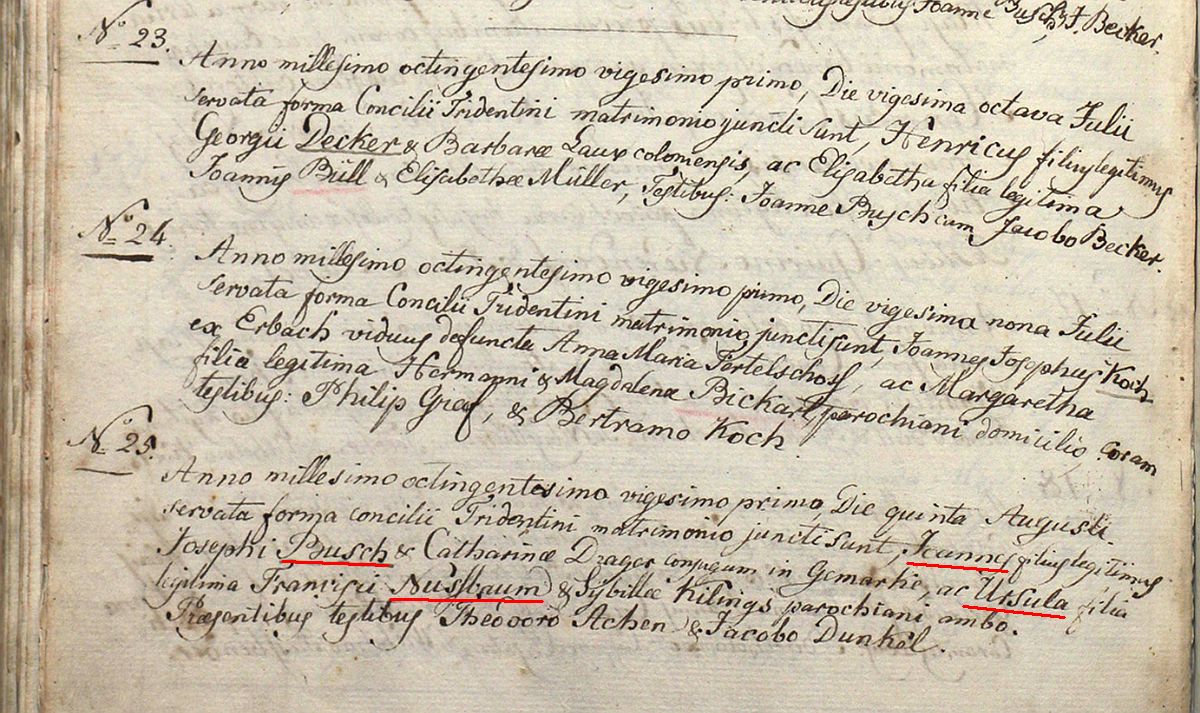 testibus Joanne Busch, & J. Becker.
No 23.
Anno millesimo octingentesimo vigesimo primo, Die vigesima octava Julii
servata forma Concilii Tridentini matrimonio juncti sunt, Henricus filius legitimus
Georgii Decker & Barbaræ Laux colomensis, ac Elisabetha filia legitima
Joannis Büll & Elisabethæ Müller, Testibus: Joanne Busch cum Jacobo Becker.
No 24.
Anno millesimo octingentesimo vigesimo primo, Die vigesima nona Julii
servata forma Concilii Tridentini matrimonio juncti sunt, Joannes Josephus Koch
ex Erbach viduus defuncta Anna Maria Pertelschoss, ac Margaretha
filia legitima Hermanni & Magdalena Bickart, parochiani domicilio coram
testibus: Philip Graf, & Bertramo Koch
No 25.
Anno millesimo octingentesimo vigesimo primo, Die quinta Augusti.
servata forma concilii Tridentini matrimonio juncti sunt, Joannes filius legitimus
Josephi Busch & Catharinæ Drager conjugum in Gemarke, ac Ursula filia
legitima Francisci Nußbaum & Sybillæ Kilings parochiani ambo.
Præsentibus testibus Theodoro Achen & Jacobo Dunkel.